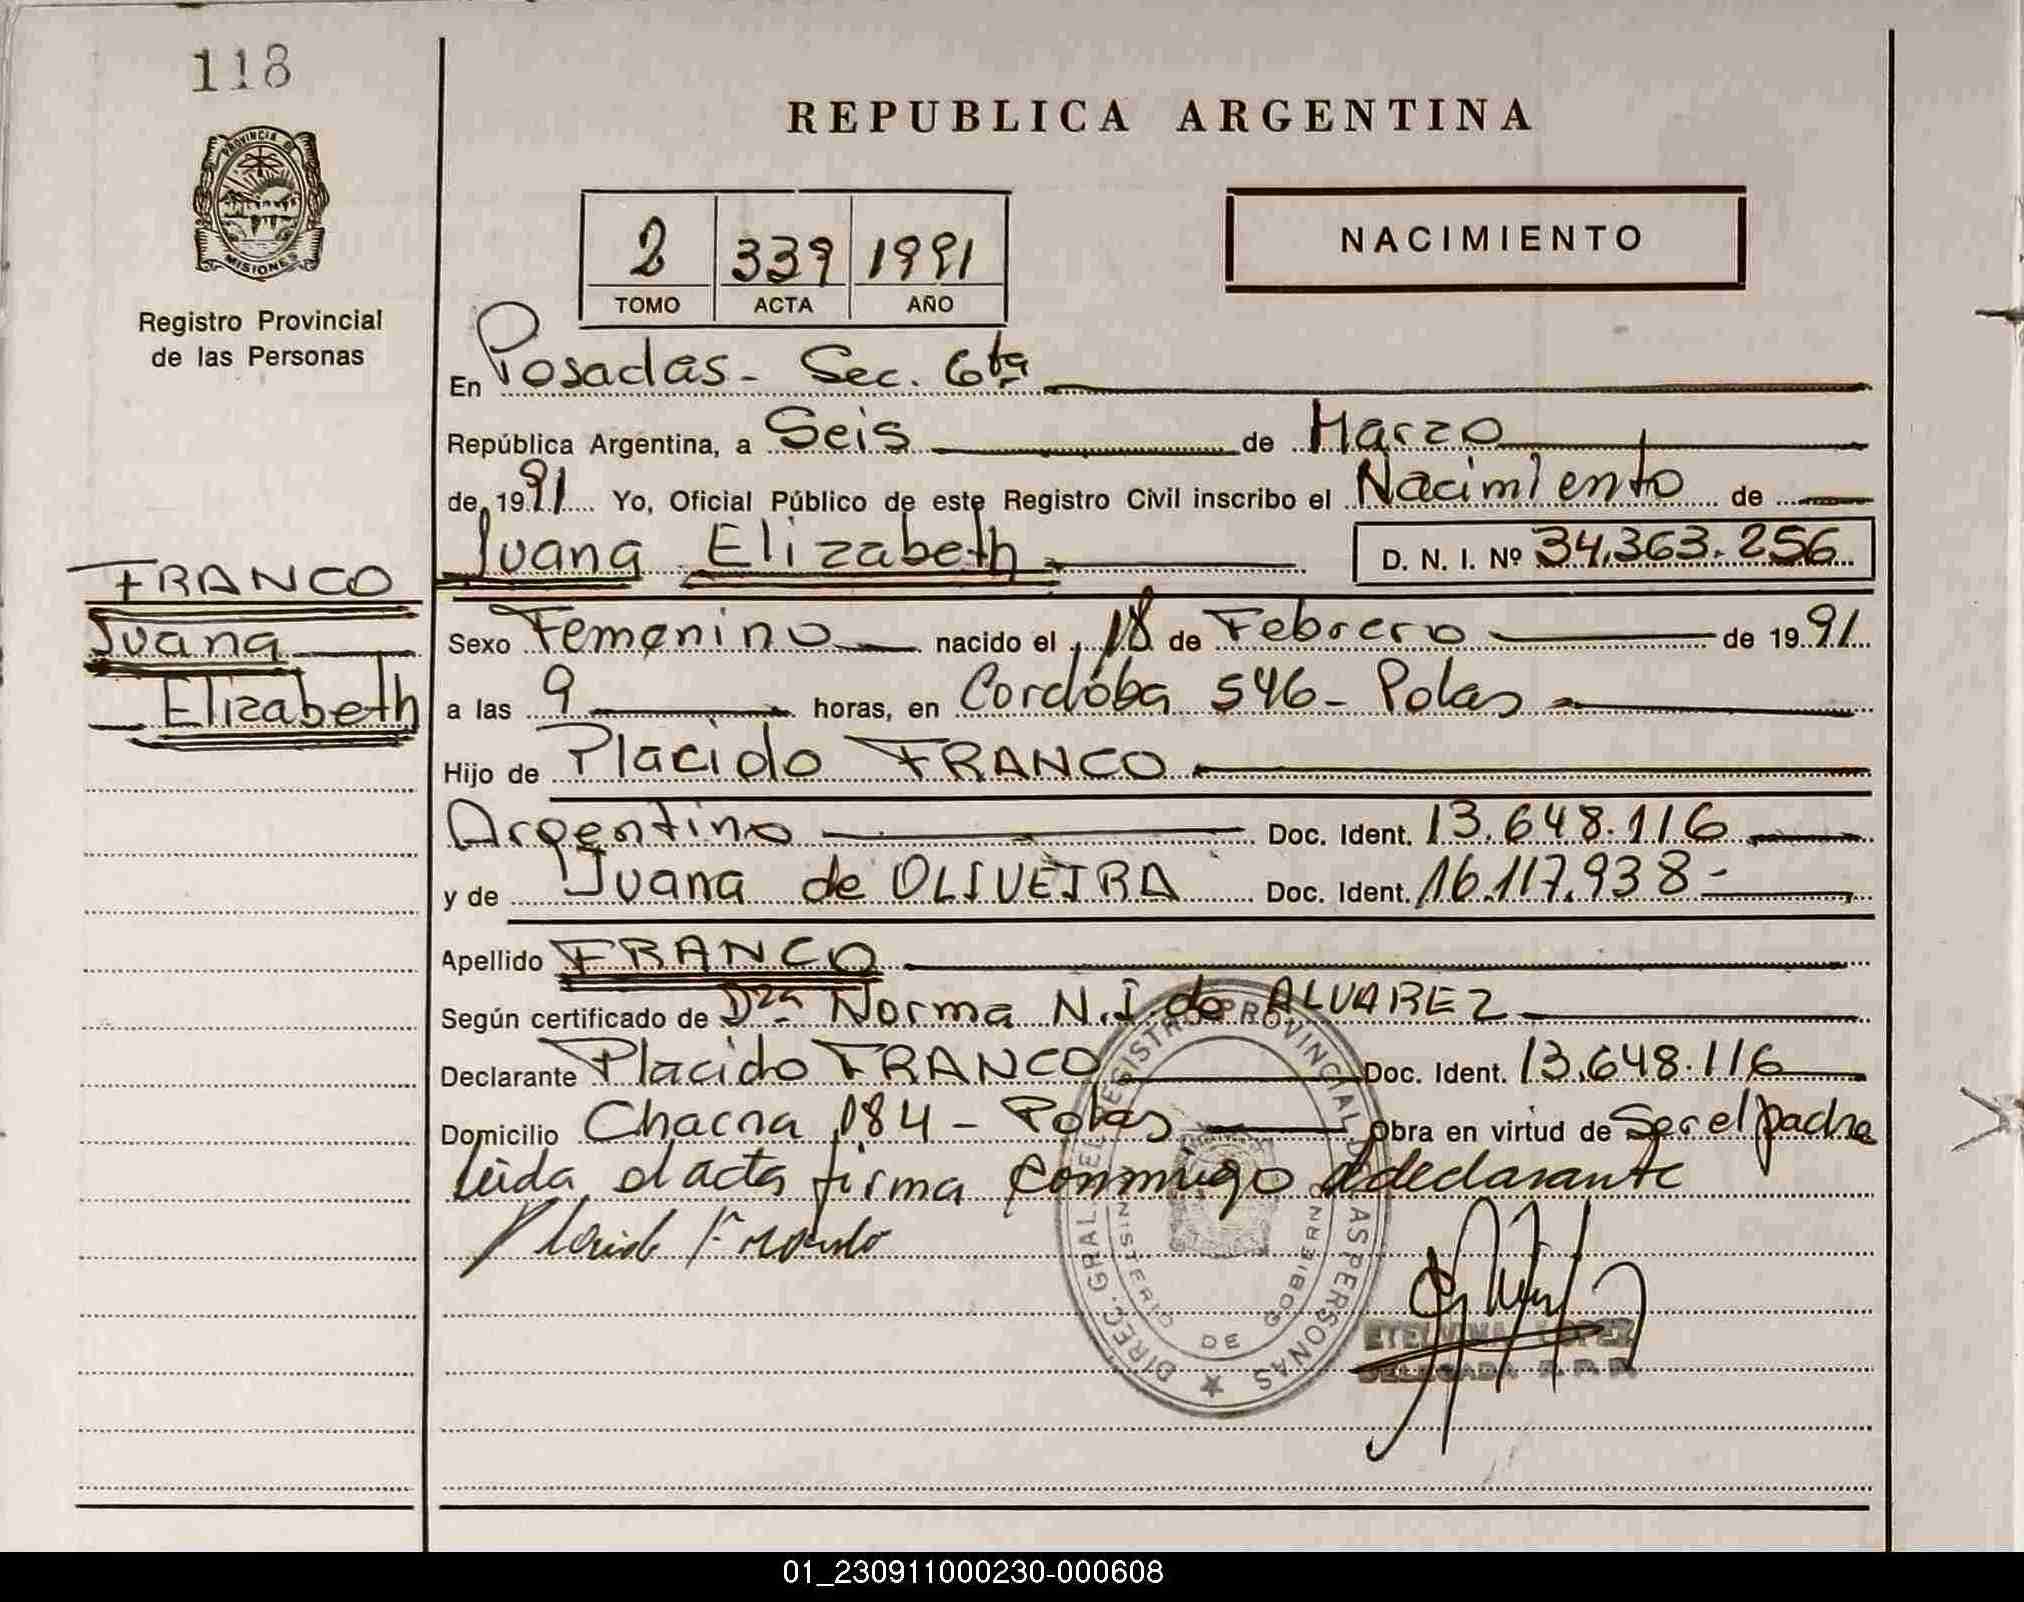 118
PROVINCIA DE
MISIONES
Registro Provincial
de las Personas
REPUBLICA ARGENTINA
2 339 1991
TOMO ACTA AÑO
NACIMIENTO
En Posadas - Sec. 6ta
República Argentina, a Seis de Marzo
de 1991 Yo, Oficial Público de este Registro Civil inscribo el Nacimiento de
Juana Elizabeth D. N. I. Nº 34.363.256
FRANCO
Juana
Elizabeth
Sexo Femenino nacido el 18 de Febrero de 1991
a las 9 horas, en Cordóba 546 - Pdas
Hijo de Placido FRANCO
Argentino Doc. Ident. 13.648.116
y de Juana de OLIVEIRA Doc. Ident. 16.117.938 -
Apellido FRANCO
Según certificado de Dra Norma N. I. de ALVAREZ
Declarante Placido FRANCO Doc. Ident. 13.648.116
Domicilio Chacra 184 - Pdas Obra en virtud de Ser el padre
leida el acta firma conmigo el declarante
Placido Franco
DIREC. GRAL. DEL REGISTRO PROVINCIAL DE LAS PERSONAS
MINISTERIO DE GOBIERNO
ETELVINA LOPEZ
DELEGADA R. P. P.
01_230911000230-000608